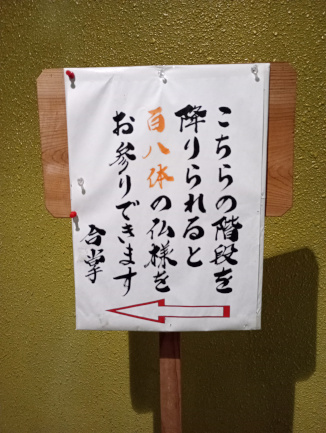 こちらの階段を
降りられると
百八体の仏様を
お参りできます
合掌